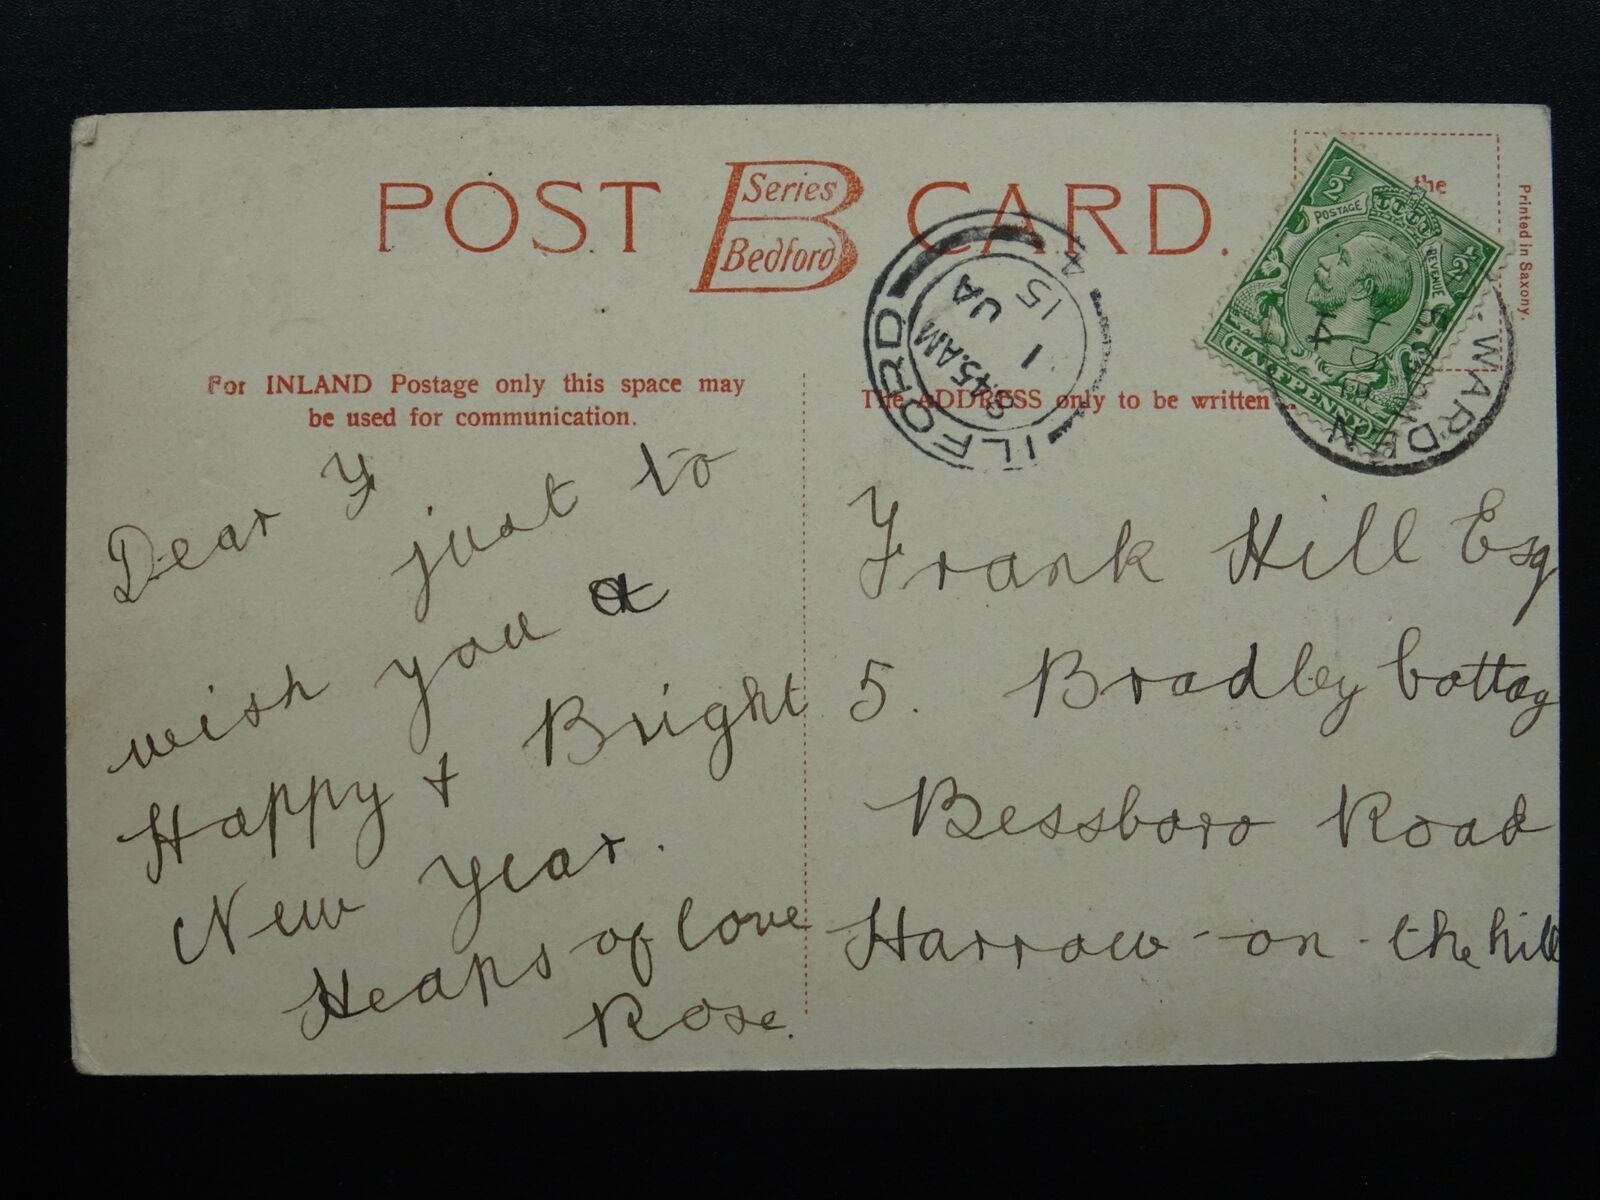 POST Series B Bedford CARD.
Printed in Saxony.
the
½ POSTAGE REVENUE ½
HALFPENNY
WARDEN
14
ILFORD
9.45AM
1 JA
15
4
For INLAND Postage only this space may
be used for communication.
The ADDRESS only to be written
Dear F just to
wish you a
Happy + Bright
New Year.
Heaps of love
Rose.
Frank Hill Esq
5. Bradley Cottag
Bessboro Road
Harrow-on-the hill